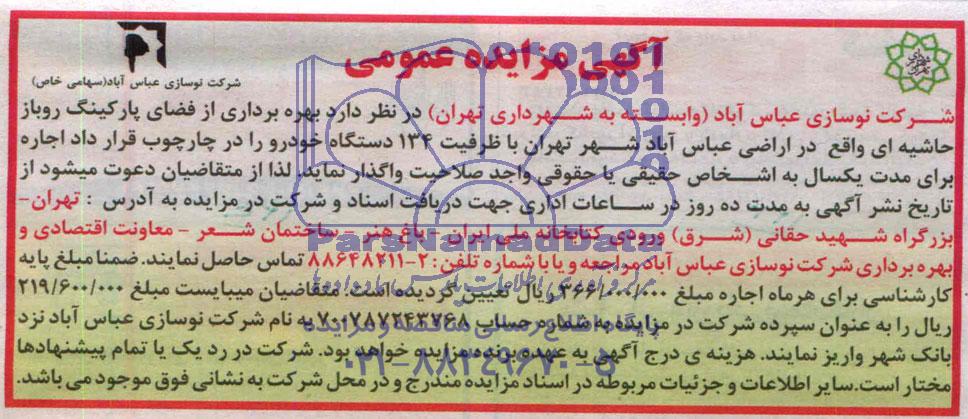 آگهی مزایده عمومی
شرکت نوسازی عباس آباد(سهامی خاص)
شهرداری تهران
شرکت نوسازی عباس آباد (وابسته به شهرداری تهران) در نظر دارد بهره برداری از فضای پارکینگ روباز
حاشیه ای واقع در اراضی عباس آباد شهر تهران با ظرفیت ۱۳۴ دستگاه خودرو را در چارچوب قرار داد اجاره
برای مدت یکسال به اشخاص حقیقی یا حقوقی واجد صلاحیت واگذار نماید. لذا از متقاضیان دعوت میشود از
تاریخ نشر آگهی به مدت ده روز در ساعات اداری جهت دریافت اسناد و شرکت در مزایده به آدرس : تهران-
بزرگراه شهید حقانی (شرق) ورودی کتابخانه ملی ایران - باغ هنر - ساختمان شعر - معاونت اقتصادی و
بهره برداری شرکت نوسازی عباس آباد مراجعه و یا با شماره تلفن: ۲-۸۸۶۴۸۲۱۱ تماس حاصل نمایند. ضمنا مبلغ پایه
کارشناسی برای هرماه اجاره مبلغ ۳۶۶/۰۰۰/۰۰۰ ریال تعیین گردیده است. متقاضیان میبایست مبلغ ۲۱۹/۶۰۰/۰۰۰
ریال را به عنوان سپرده شرکت در مزایده به شماره حسابی ۷۰۰۷۸۷۲۴۳۷۶۸ به نام شرکت نوسازی عباس آباد نزد
بانک شهر واریز نمایند. هزینه ی درج آگهی به عهده برنده مزایده خواهد بود. شرکت در رد یک یا تمام پیشنهادها
مختار است.سایر اطلاعات و جزئیات مربوطه در اسناد مزایده مندرج و در محل شرکت به نشانی فوق موجود می باشد.
ParsNamadData
پایگاه اطلاع رسانی مناقصه و مزایده
۰۲۱-۸۸۳۴۹۶۷۰-۵